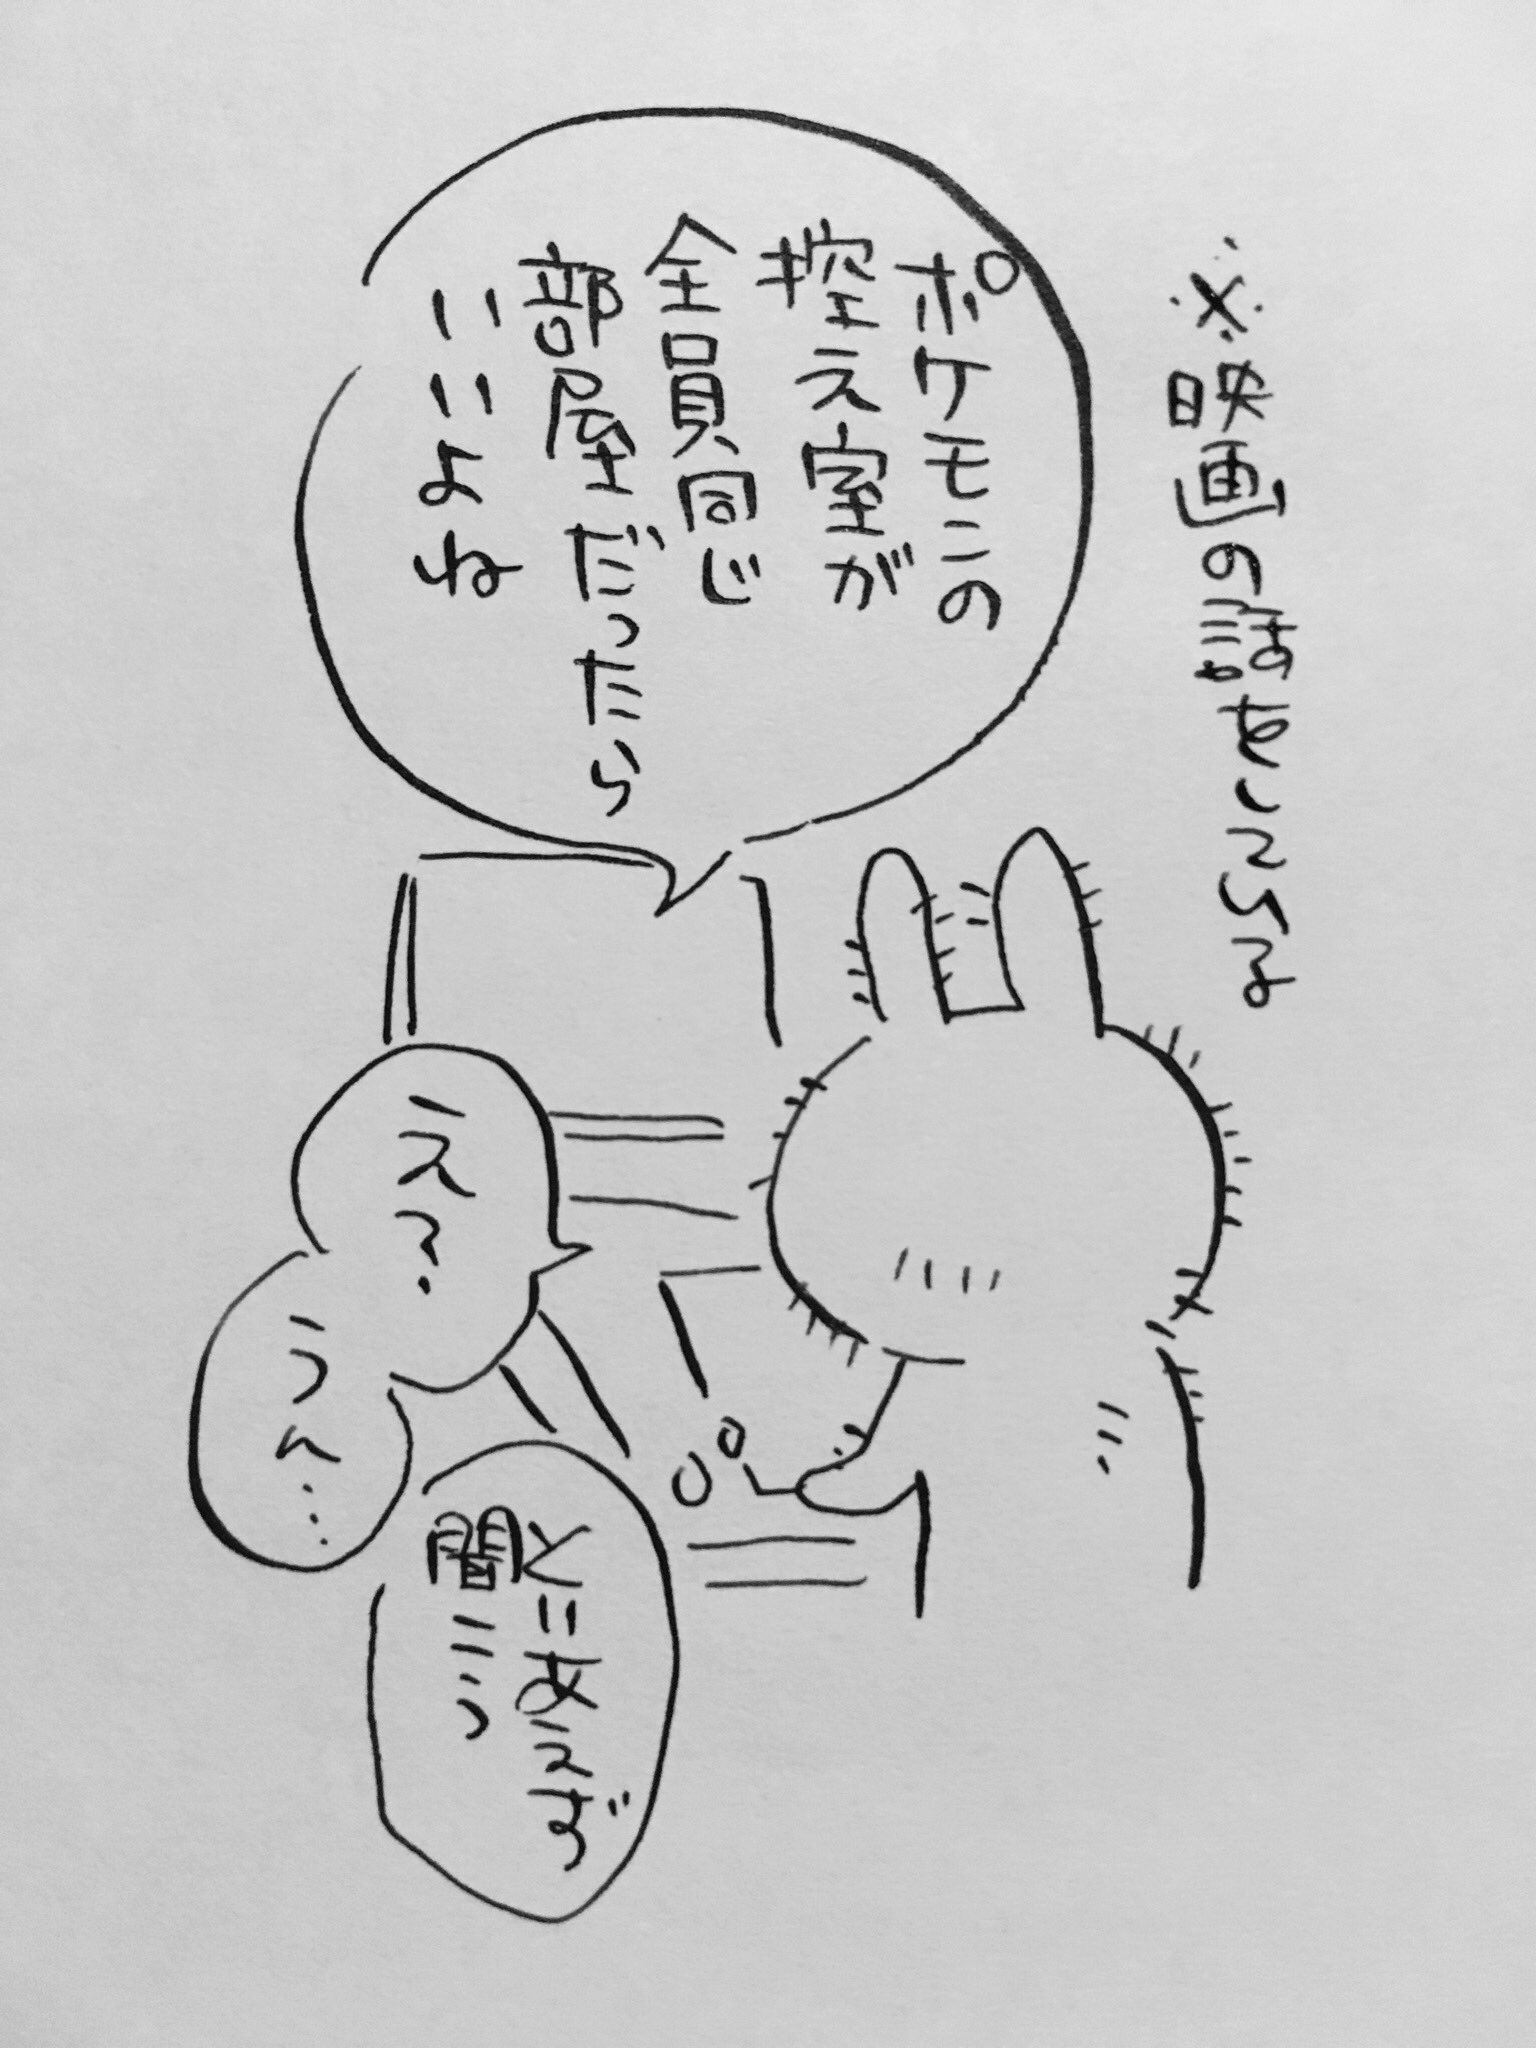 ※映画の話をしている
ポケモンの
控え室が
全員同じ
部屋だったら
いいよね
え?
うん…
とりあえず
聞こう